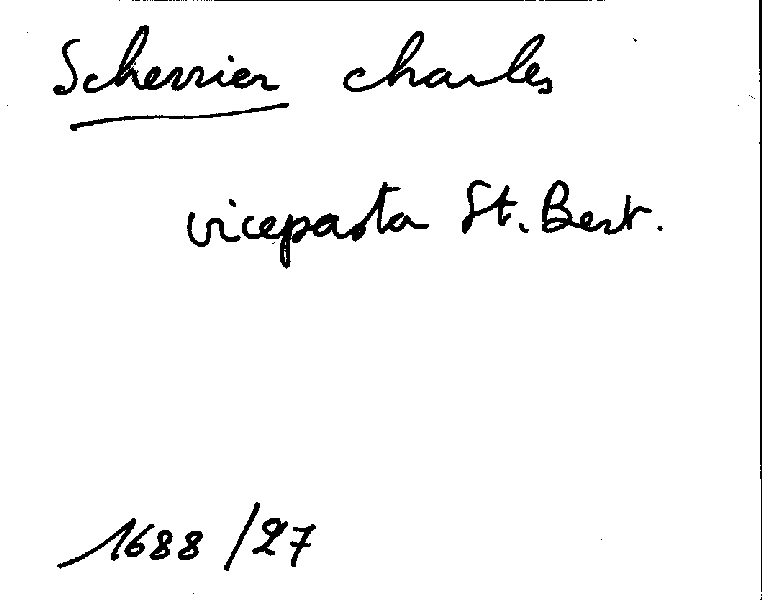 Scherrier Charles
vicepastor St. Bert.
1688/27